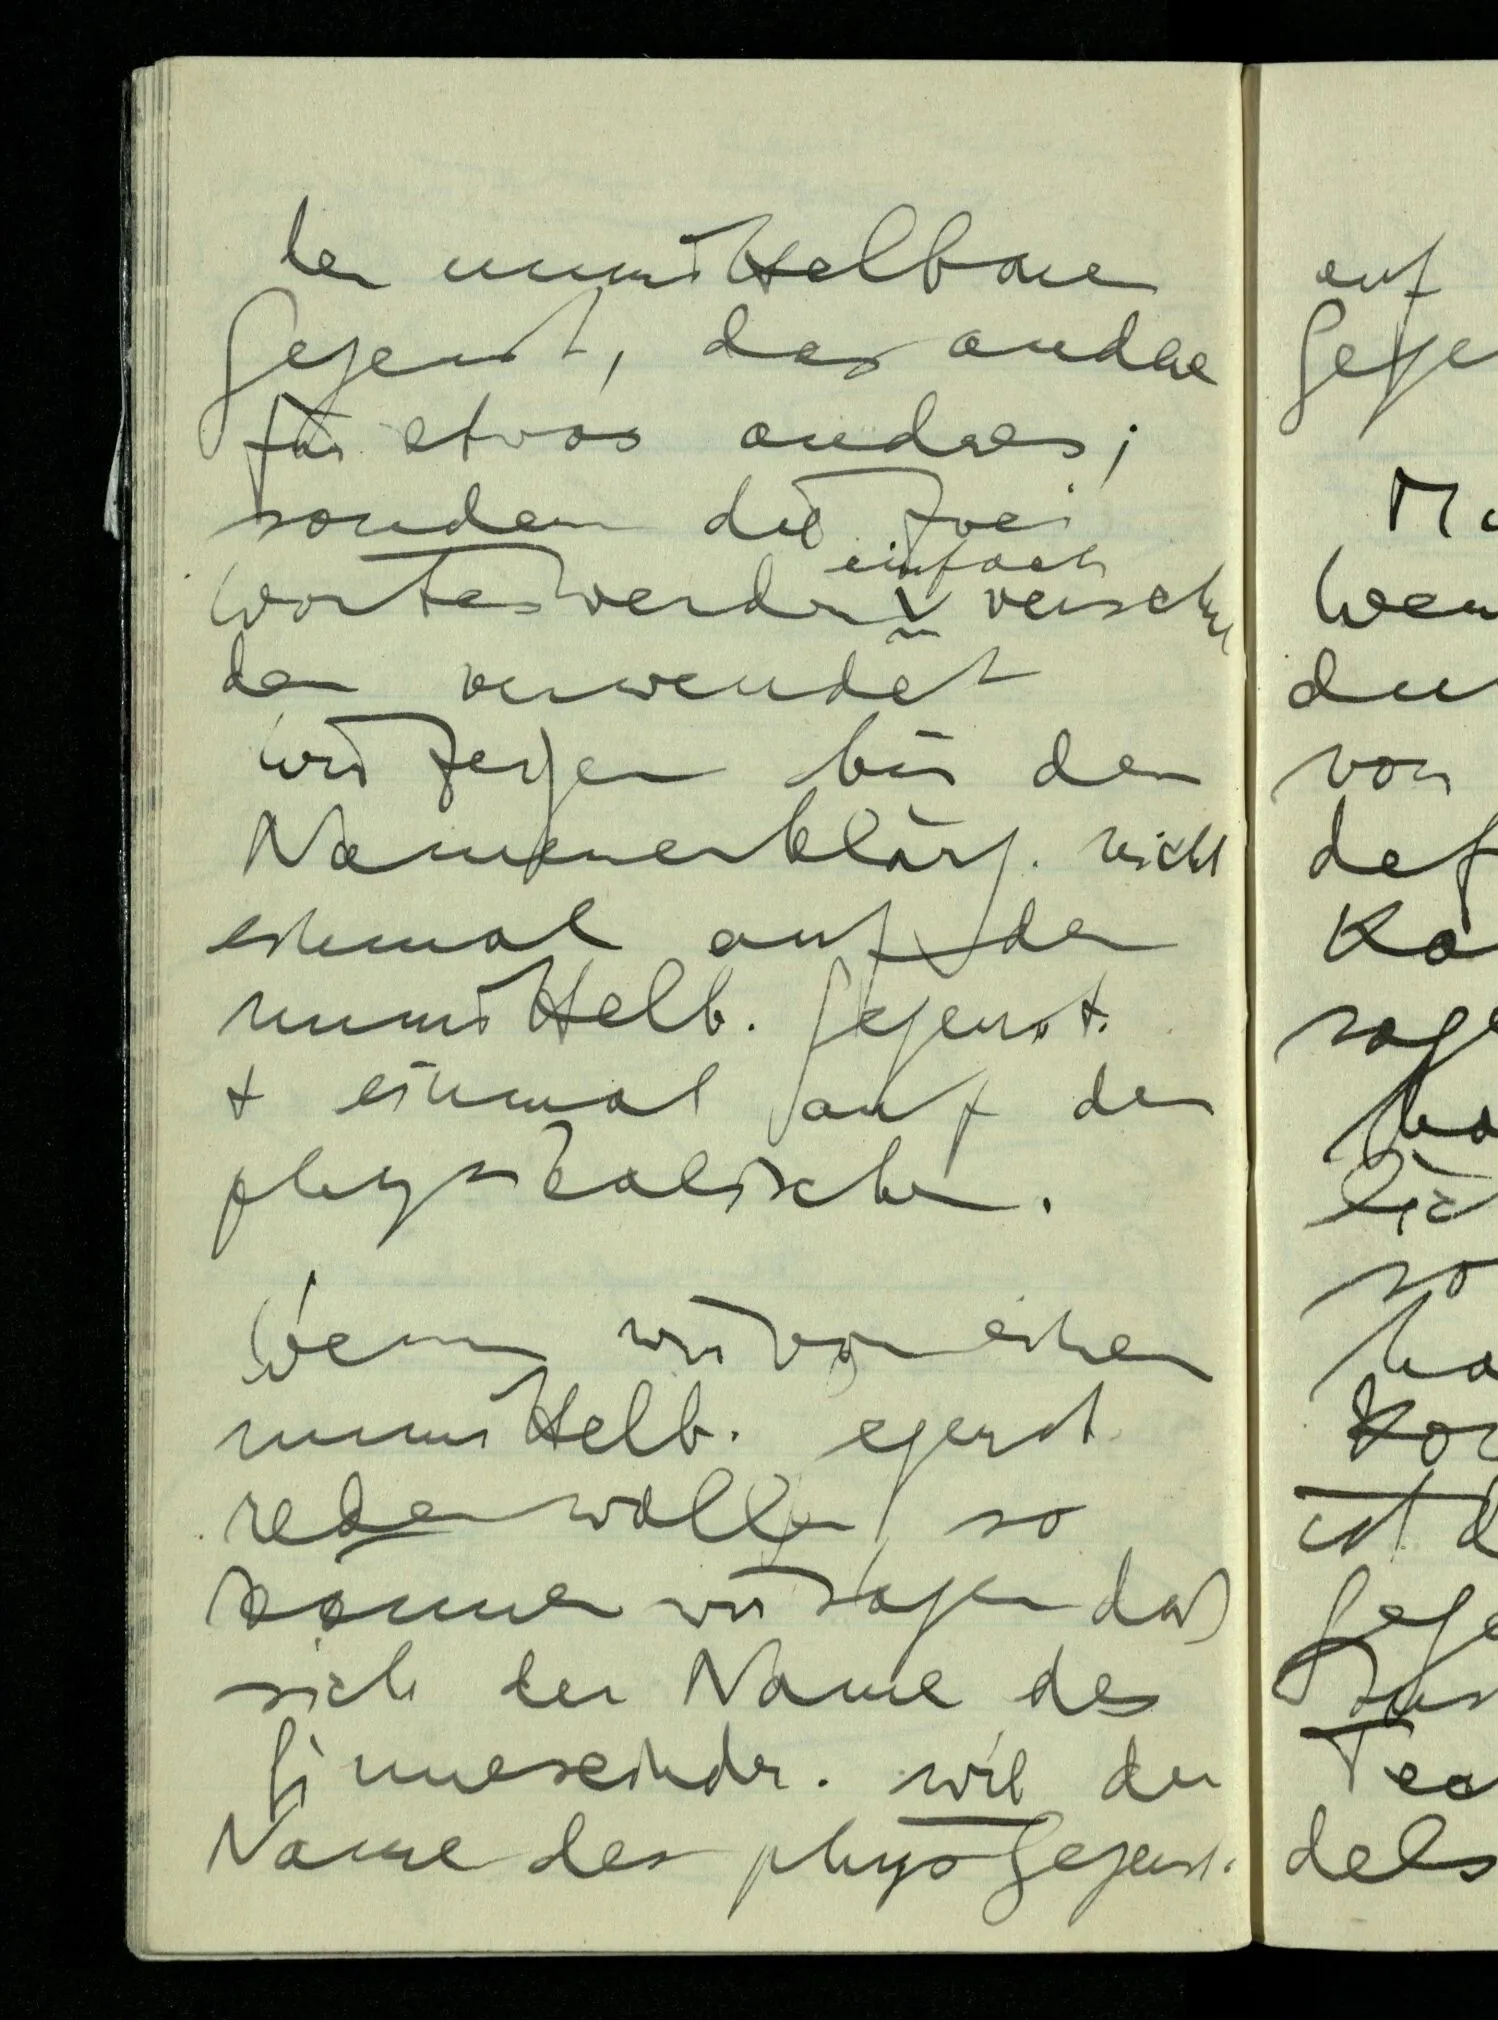 der unmittelbare
Gegenst, das andere
für etwas andres;
sondern die zwei
einfach
Worte werden verschie
den verwendet
Wir zeigen bei der
Namenerklärg. nicht
einmal auf den
unmittelb. Gegenst.
+ einmal auf den
physikalischen.
Wenn wir von einem
unmittelb. egenst
reden wollen so
können wir sagen daß
sich der Name des
Sinneseindr. wie der
Name des phys Gegenst.
auf
Gege
von
def